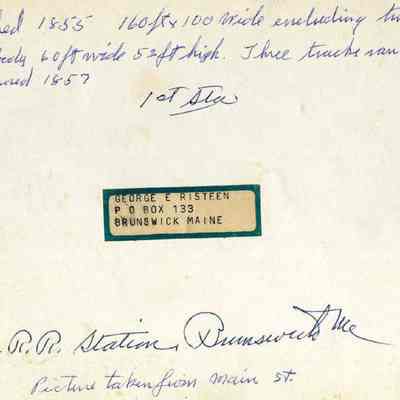 1855 160ft x 100 wide encluding
60ft wide 53ft high. Three tracks ran
1857
1st Sta
GEORGE E RISTEEN
P O BOX 133
BRUNSWICK MAINE
R.R. Station, Brunswick Me
Picture taken from main st.